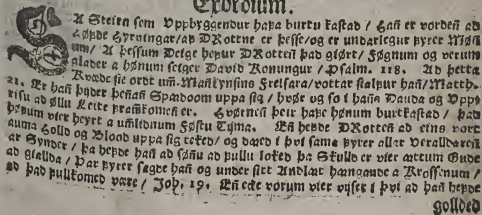 Exordium.
SA Steirn sem Vppbyggendur hafa burtu kastad / Hañ er vorden ad
Høfde Hyrningar/af DRottne er þesse/og er undarlegur fyrer Møñ
um/ A þessum Deige hefur DRotteñ þad giørt/ Føgnum og verum
glader a hønum seiger David Konungur / Psalm. 118. Ad þetta
Kvæde sie ordt um Mañkynsins Frelsara/vottar sialfur hañ/Matth.
21. Er hañ þyder þeñañ Spaadoom uppa sig / hvør og so i hans Dauda og Vpp
risu ad øllu Leite framkomeñ er. Hverneñ þeir hafe hønum burtkastad / þad
høfum vier heyrt a umlidnum Føstu Tijma. Eñ hefde DRotteñ ad eins vort
auma Holld og Blood uppa sig teked/ og daed i því sama fyrer allar Veralldareñ
ar Synder / þa hefde hañ ad søñu ad fullu loked þa Skulld er vier attum Gude
ad gialda / Þar fyrer sagde hañ og under sitt Andlat hangande a Krossenum /
ad þad fullkomed være / Joh. 19. Eñ ecke vorum vier vijser i því ad hañ hefde
gollded